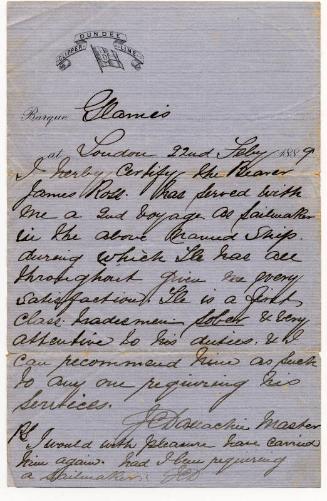 DUNDEE
CLIPPER LINE
Barque Glamis
at London 22nd Feby 1889
I herby Certify the Bearer
James Ross. has served with
me a 2nd Voyage as Sailmaker
in the above Named Ship.
during which He has all
throughout given me every
Satisfaction. He is a first
Class tradesmen sober & very
attentive to his duties. & I
can recommend him as such
to any one requiring his
services.
Master
PS I would with pleasure have carried
him again. had I been requiring
a Sailmaker.